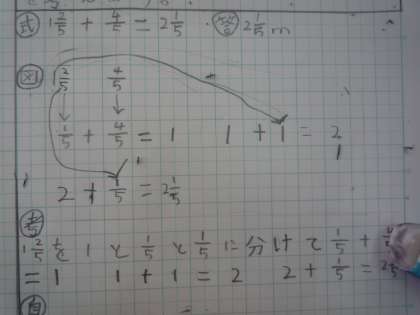 式 1 2/5 + 4/5 = 2 1/5 答 2 1/5 m
図 1 2/5 4/5
1/5 + 4/5 = 1 1 + 1 = 2
2 + 1/5 = 2 1/5
1 2/5 を 1 と 1/5 と 1/5 に分けて 1/5 + 4/5
= 1 1 + 1 = 2 2 + 1/5 = 2 1/5
自